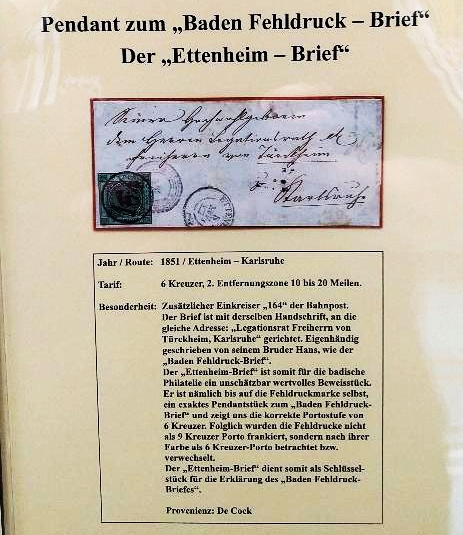 Pendant zum „Baden Fehldruck – Brief“
Der „Ettenheim – Brief“
Seiner Hochwohlgeboren
dem Herrn Legationsrath
Freiherrn von Türckheim
Karlsruhe
Jahr / Route: 1851 / Ettenheim – Karlsruhe
Tarif: 6 Kreuzer, 2. Entfernungszone 10 bis 20 Meilen.
Besonderheit: Zusätzlicher Einkreiser „164“ der Bahnpost.
Der Brief ist mit derselben Handschrift, an die
gleiche Adresse: „Legationsrat Freiherrn von
Türckheim, Karlsruhe“ gerichtet. Eigenhändig
geschrieben von seinem Bruder Hans, wie der
„Baden Fehldruck-Brief“.
Der „Ettenheim-Brief“ ist somit für die badische
Philatelie ein unschätzbar wertvolles Beweisstück.
Er ist nämlich bis auf die Fehldruckmarke selbst,
ein exaktes Pendantstück zum „Baden Fehldruck-
Brief“ und zeigt uns die korrekte Portostufe von
6 Kreuzer. Folglich wurden die Fehldrucke nicht
als 9 Kreuzer Porto frankiert, sondern nach ihrer
Farbe als 6 Kreuzer-Porto betrachtet bzw.
verwechselt.
Der „Ettenheim-Brief“ dient somit als Schlüssel-
stück für die Erklärung des „Baden Fehldruck-
Briefes“.
Provenienz: De Cock